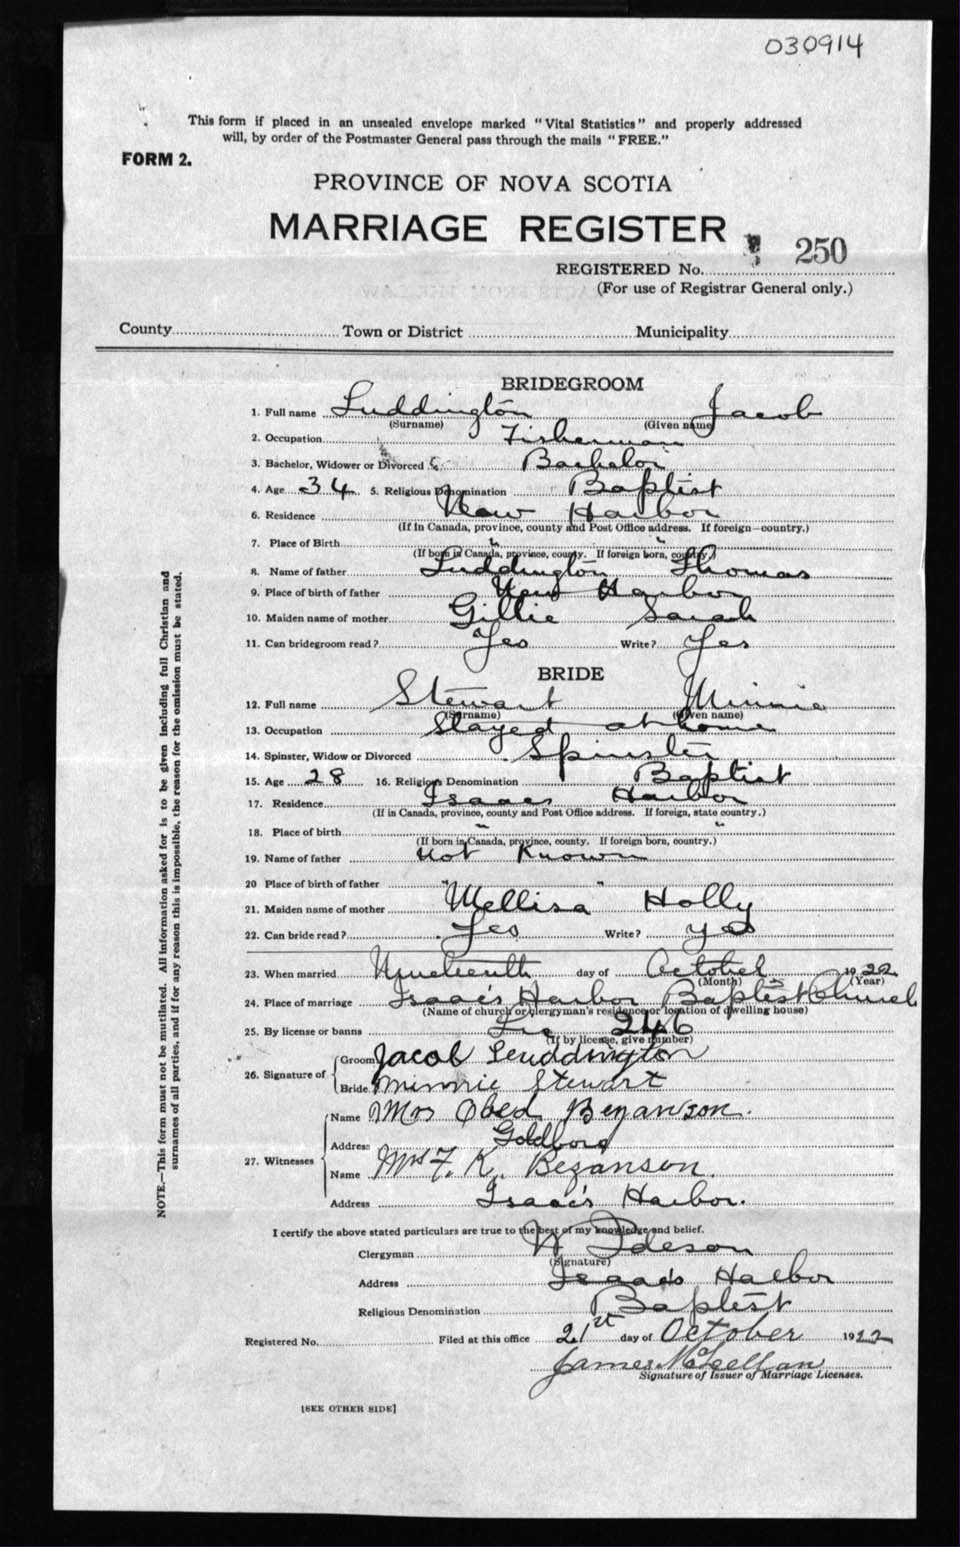 030914
This form if placed in an unsealed envelope marked "Vital Statistics" and properly addressed
will, by order of the Postmaster General pass through the mails "FREE."
FORM 2.
PROVINCE OF NOVA SCOTIA
MARRIAGE REGISTER
250
REGISTERED No.
(For use of Registrar General only.)
County Town or District Municipality
BRIDEGROOM
1. Full name Luddington Jacob
(Surname) (Given name)
2. Occupation Fisherman
3. Bachelor, Widower or Divorced Bachelor
4. Age 34 5. Religious Denomination Baptist
6. Residence New Harbor
(If in Canada, province, county and Post Office address. If foreign—country.)
7. Place of Birth " "
(If born in Canada, province, county. If foreign born, country.)
8. Name of father Luddington Thomas
9. Place of birth of father New Harbor
10. Maiden name of mother Gillie Sarah
11. Can bridegroom read? Yes Write? Yes
BRIDE
12. Full name Stewart Minnie
(Surname) (Given name)
13. Occupation Stayed at home
14. Spinster, Widow or Divorced Spinster
15. Age 28 16. Religious Denomination Baptist
17. Residence Isaacs Harbor
(If in Canada, province, county and Post Office address. If foreign, state country.)
18. Place of birth " "
(If born in Canada, province, county. If foreign born, country.)
19. Name of father not Known
20 Place of birth of father " "
21. Maiden name of mother Mellisa Holly
22. Can bride read? Yes Write? yes
23. When married Nineteenth day of October 1922
(Month) (Year)
24. Place of marriage Isaac's Harbor Baptist Church
(Name of church or clergyman's residence or location of dwelling house)
25. By license or banns Lic 246
(If by license, give number)
26. Signature of
Groom Jacob Luddington
Bride Minnie Stewart
27. Witnesses
Name Mrs Obed Bezanson.
Address Goldboro
Name Mrs F. K. Bezanson
Address Isaac's Harbor.
I certify the above stated particulars are true to the best of my knowledge and belief.
Clergyman
(Signature)
Address Isaacs Harbor
Religious Denomination Baptist
Registered No. Filed at this office 21st day of October 1922
James McLellan
Signature of Issuer of Marriage Licenses.
[SEE OTHER SIDE]
NOTE.—This form must not be mutilated. All information asked for is to be given including full Christian and
surnames of all parties, and if for any reason this is impossible, the reason for the omission must be stated.